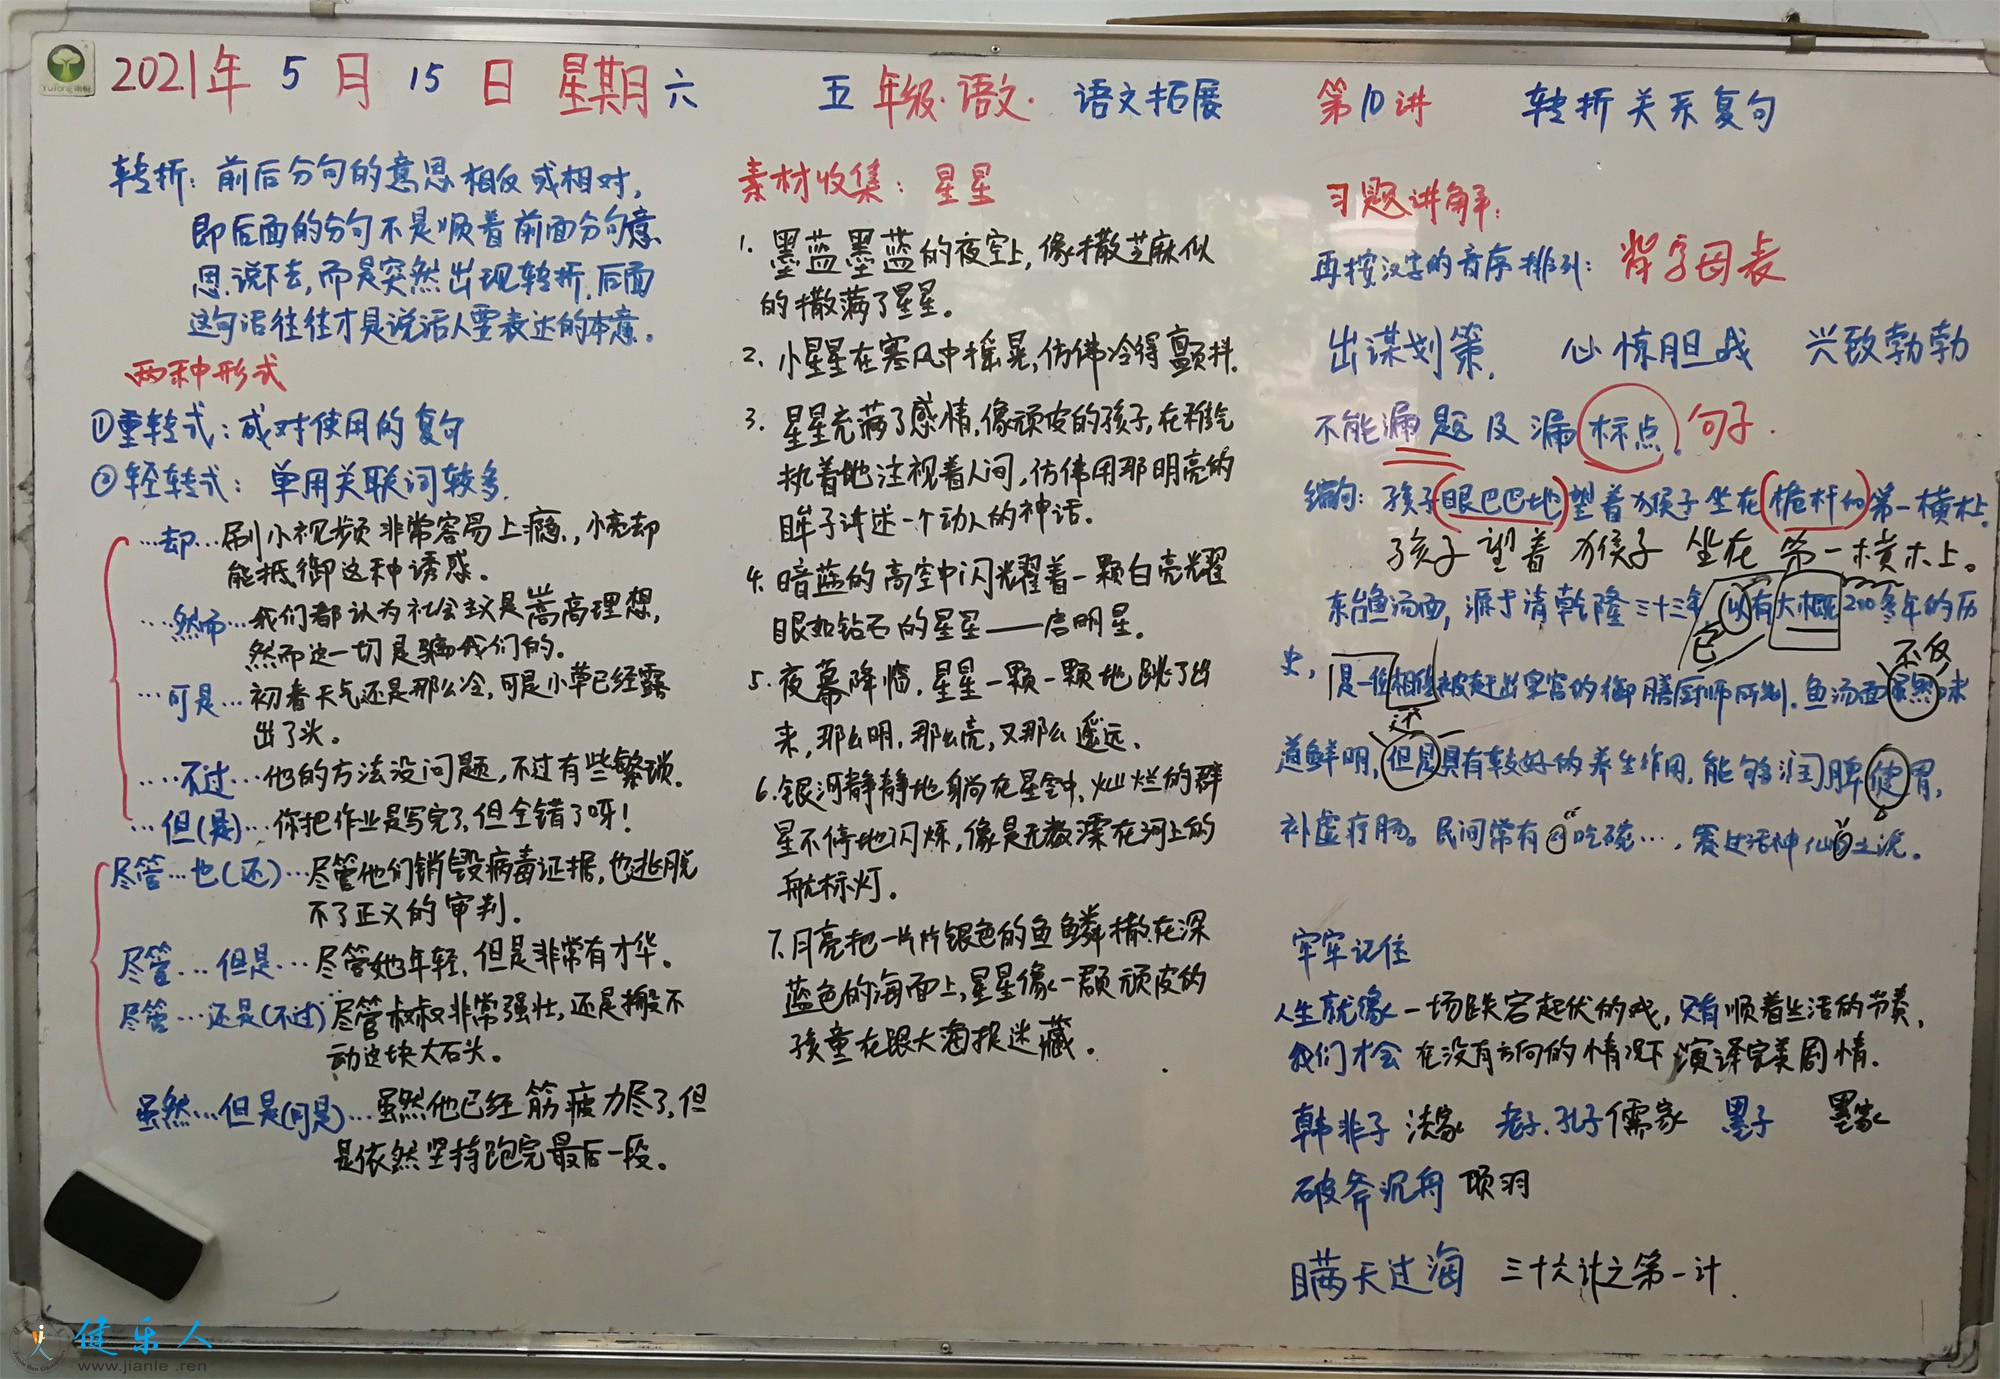 2021年 5 月 15 日 星期六 五年级·语文· 语文拓展 第10讲 转折关系复句
转折：前后分句的意思相反或相对，
即后面的分句不是顺着前面分句意
思说下去，而是突然出现转折，后面
这句话往往才是说话人要表达的本意。
两种形式
①重转式：成对使用的复句
②轻转式：单用关联词较多。
…却…刷小视频非常容易上瘾，小亮却
能抵御这种诱惑。
…然而…我们都认为社会主义是崇高理想，
然而这一切是骗我们的。
…可是…初春天气还是那么冷，可是小草已经露
出了头。
…不过…他的方法没问题，不过有些繁琐。
…但(是)…你把作业是写完了，但全错了呀！
尽管…也(还)…尽管他们销毁病毒证据，也逃脱
不了正义的审判。
尽管…但是…尽管她年轻，但是非常有才华。
尽管…还是(不过)尽管叔叔非常强壮，还是搬不
动这块大石头。
虽然…但是(可是)…虽然他已经筋疲力尽了，但
是依然坚持跑完最后一段。
素材收集：星星
1. 墨蓝墨蓝的夜空上，像撒芝麻似
的撒满了星星。
2. 小星星在寒风中摇晃，仿佛冷得颤抖。
3. 星星充满了感情，像顽皮的孩子，在稚气
执着地注视着人间，仿佛用那明亮的
眸子讲述一个动人的神话。
4. 暗蓝的高空中闪耀着一颗白亮耀
眼如钻石的星星——启明星。
5. 夜幕降临，星星一颗一颗地跳了出
来，那么明，那么亮，又那么遥远。
6. 银河静静地躺在星空中，灿烂的群
星不停地闪烁，像是无数漂在河上的
航标灯。
7. 月亮把一片片银色的鱼鳞撒在深
蓝色的海面上，星星像一群顽皮的
孩童在跟大海捉迷藏。
习题讲解：
再按汉字的音序排列：背字母表
出谋划策， 心惊胆战 兴致勃勃
不能漏题及漏标点，句子．
缩句：孩子(眼巴巴地)望着猴子坐在(桅杆的)第一横木上。
孩子望着猴子坐在第一横木上。
东台鱼汤面，源于清乾隆三十三年，以有大概200多年的历
已
不仅
史，是一位相传被赶出皇宫的御膳厨师所创。鱼汤面虽然味
还
道鲜明，但是具有较好的养生作用，能够润脾健胃，
补虚疗肠。民间常有 吃碗…，赛过活神仙 之说。
牢牢记住
人生就像一场跌宕起伏的戏，只有顺着生活的节奏，
我们才会在没有方向的情况下演译完美剧情。
韩非子 法家 老子、孔子儒家 墨子 墨家
破斧沉舟 项羽
瞒天过海 三十六计之第一计．
健乐人
www.jianle.ren